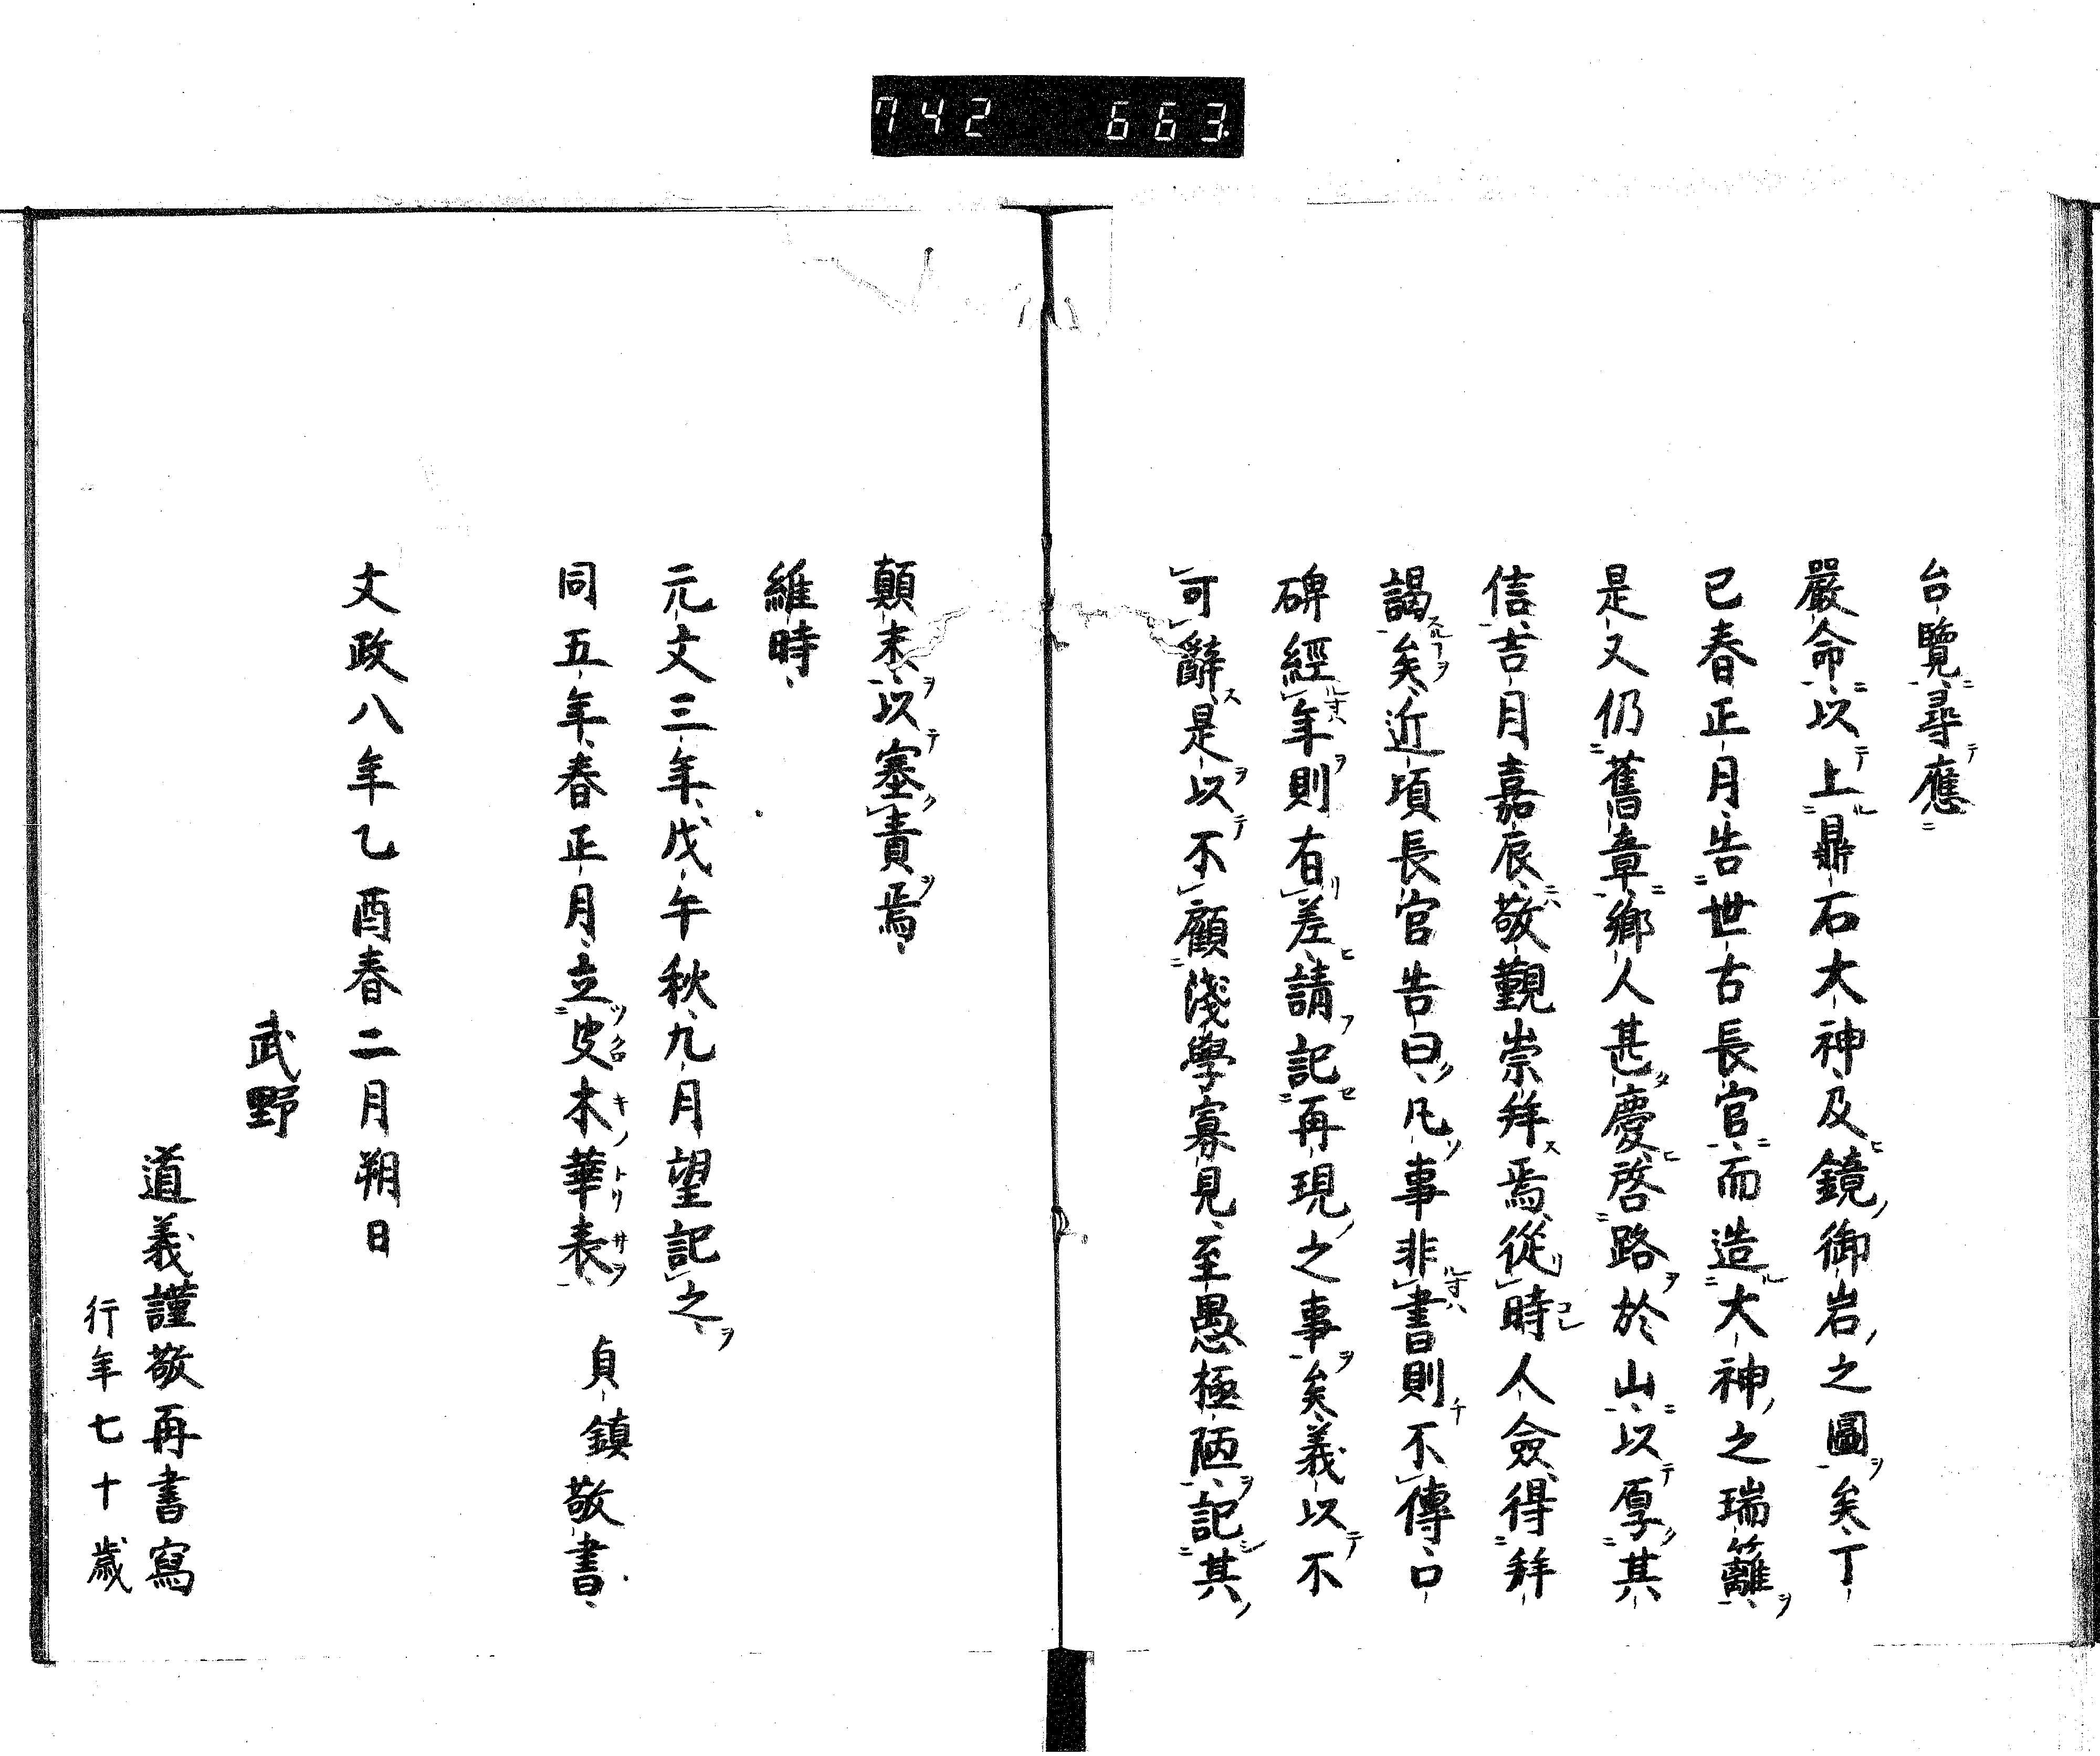 742 663
台覽尋應
嚴命以上鼎石大神及鏡御岩之圖矣丁
巳春正月告世古長官而造大神之瑞籬
是又仍舊章鄉人甚慶啓路於山以厚其
信吉月嘉辰敬觀崇拜焉從時人僉得拜
謁矣近頃長官告曰凡事非書則不傳口
碑經年則有差請記再現之事矣義以不
可辭是以不顧淺學寡見至愚極陋記其
顛末以塞責焉
維時
元文三年戊午秋九月望記之
同五年春正月立皮木華表 貞鎮敬書
文政八年乙酉春二月朔日
武野
道義謹敬再書寫
行年七十歲